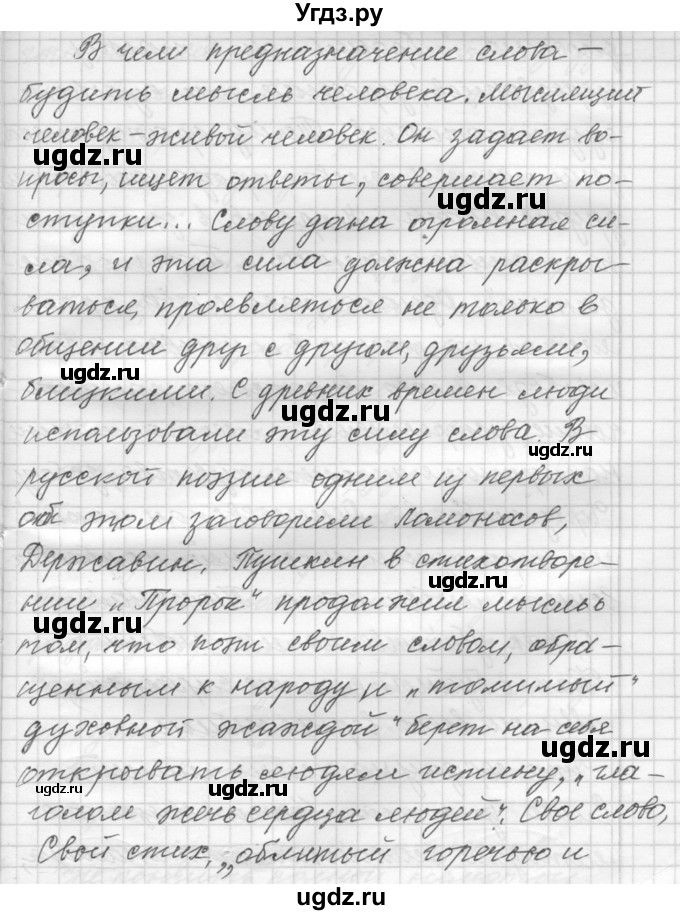 Угдз.ру
В чем предназначение слова –
будить мысль человека. Мыслящий
человек – живой человек. Он задает во-
просы, ищет ответы, совершает по-
ступки... Слову дана огромная си-
ла, и эта сила должна раскры-
ваться, проявляться не только в
общении друг с другом, друзьями,
близкими. С древних времен люди
использовали эту силу слова. В
русской поэзии одним из первых
об этом заговорили Ломоносов,
Державин. Пушкин в стихотворе-
нии „Пророк“ продолжил мысль о
том, что поэт своим словом, обра-
щенным к народу и „томимый“
духовной жаждой“ берет на себя
открывать людям истину, „гла-
голом жечь сердца людей“. Свое слово,
Свой стих, „облитый горечью и
ugdz.ru
ugdz.ru
ugdz.ru
ugdz.ru
ugdz.ru
ugdz.ru
ugdz.ru
ugdz.ru
ugdz.ru
ugdz.ru
ugdz.ru
ugdz.ru
ugdz.ru